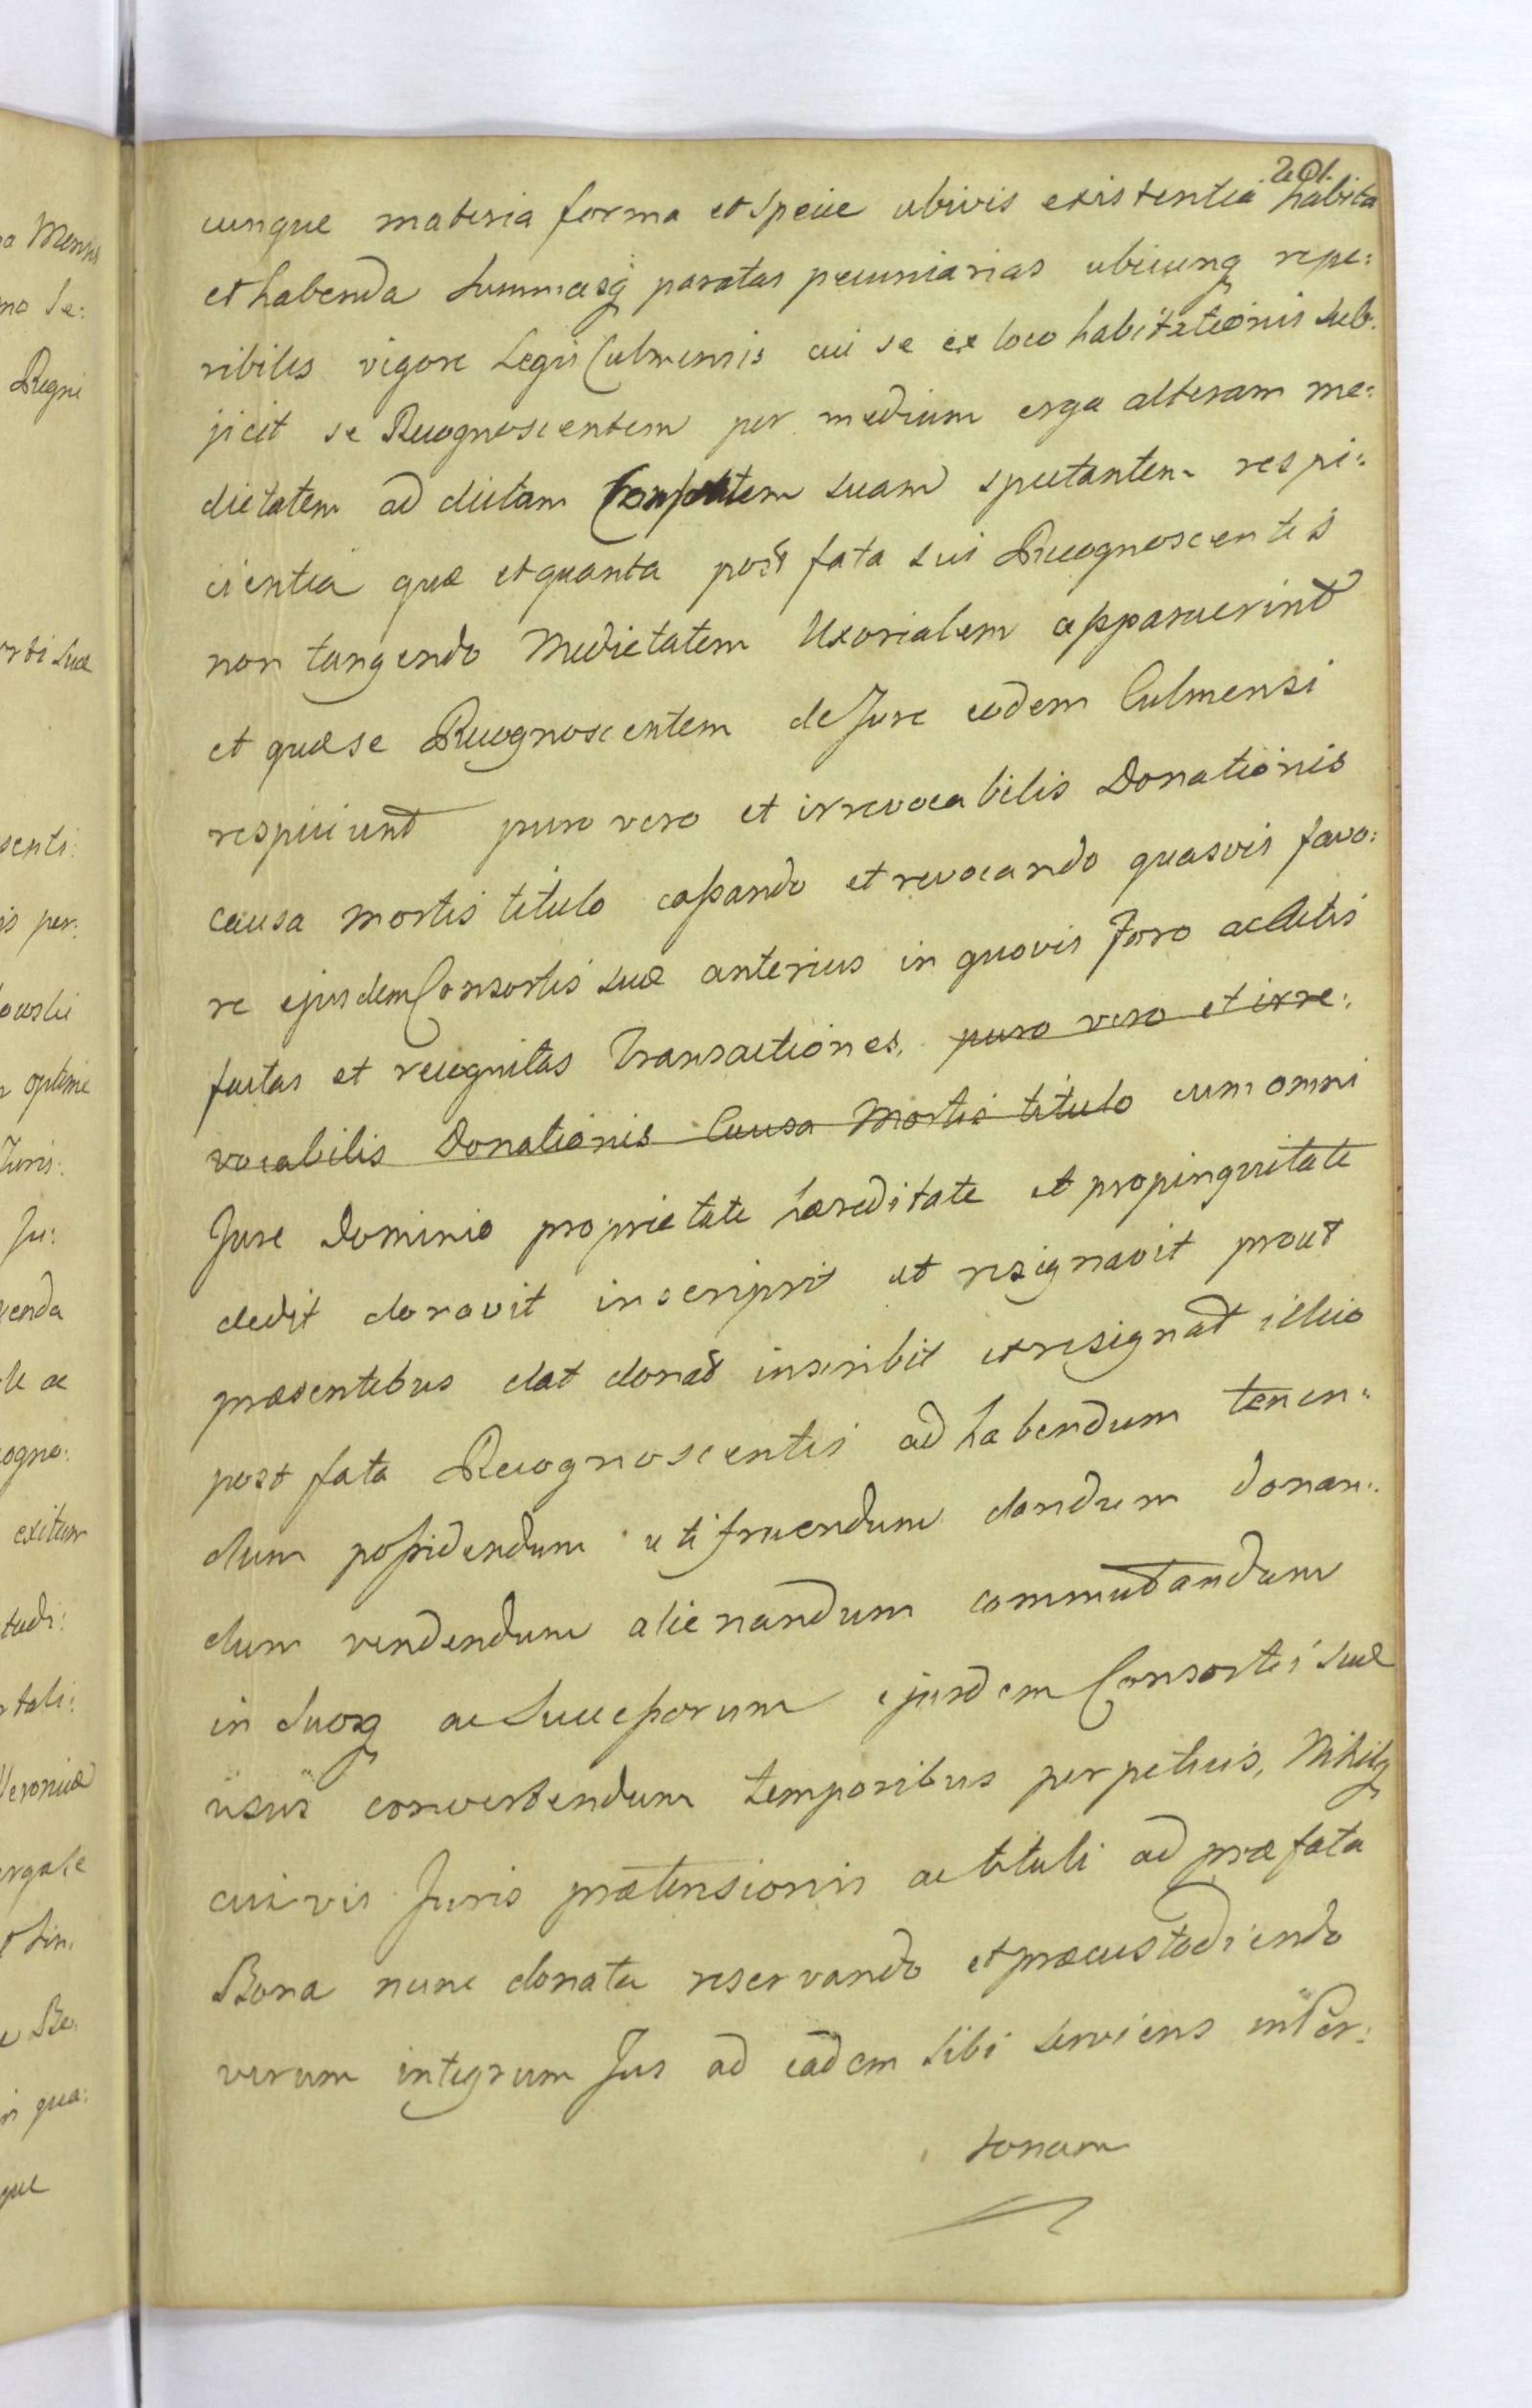 201.
cunque materia forma et specie ubivis existentia habita
et habenda summasq paratas pecuniarias ubicunq repe:
ribiles vigore Legis Culmensis cui se ex loco habitationis sub:
jicit se Recognoscentem per medium erga alteram me:
dietatem ad dictam Consortem suam spectantem respi:
cientia quæ et quanta post fata sui Recognoscentis
non tangendo Medietatem Uxorialem apparuerint
et quæ se Recognoscentem de Jure eodem Culmensi
respiciunt puro vero et irrevocabilis Donationis
causa mortis titulo cassando et revocando quasvis favo:
re ejusdem Consortis suæ anterius in quovis Foro ac Actis
factas et recognitas Transactiones, puro vero et irre:
vocabilis Donationis Causa Mortis titulo cum omni
Jure Dominio proprietate hæreditate et propinquitate
dedit donavit inscripsit et resignavit prout
præsentibus dat donat inscribit et resignat illico
post fata Recognoscentis ad habendum tenen:
dum possidendum utifruendum dandum donan:
dum vendendum alienandum commutandum
in suosq ac Successorum ejusdem Consortis suæ
usus convertendum temporibus perpetuis, Nihilq
cuivis Juris prætensionis ac tituli ad præfata
Bona nunc donata reservando et præcustodiendo
verum integrum Jus ad eadem sibi serviens in Per:
sonam
a Mensis
no Se:
Regni
suæ
senti:
is per:
optime
Juris:
Ju:
enda
ogno:
exitum
tudi:
tali:
Veronicæ
Bo:
qua:
que